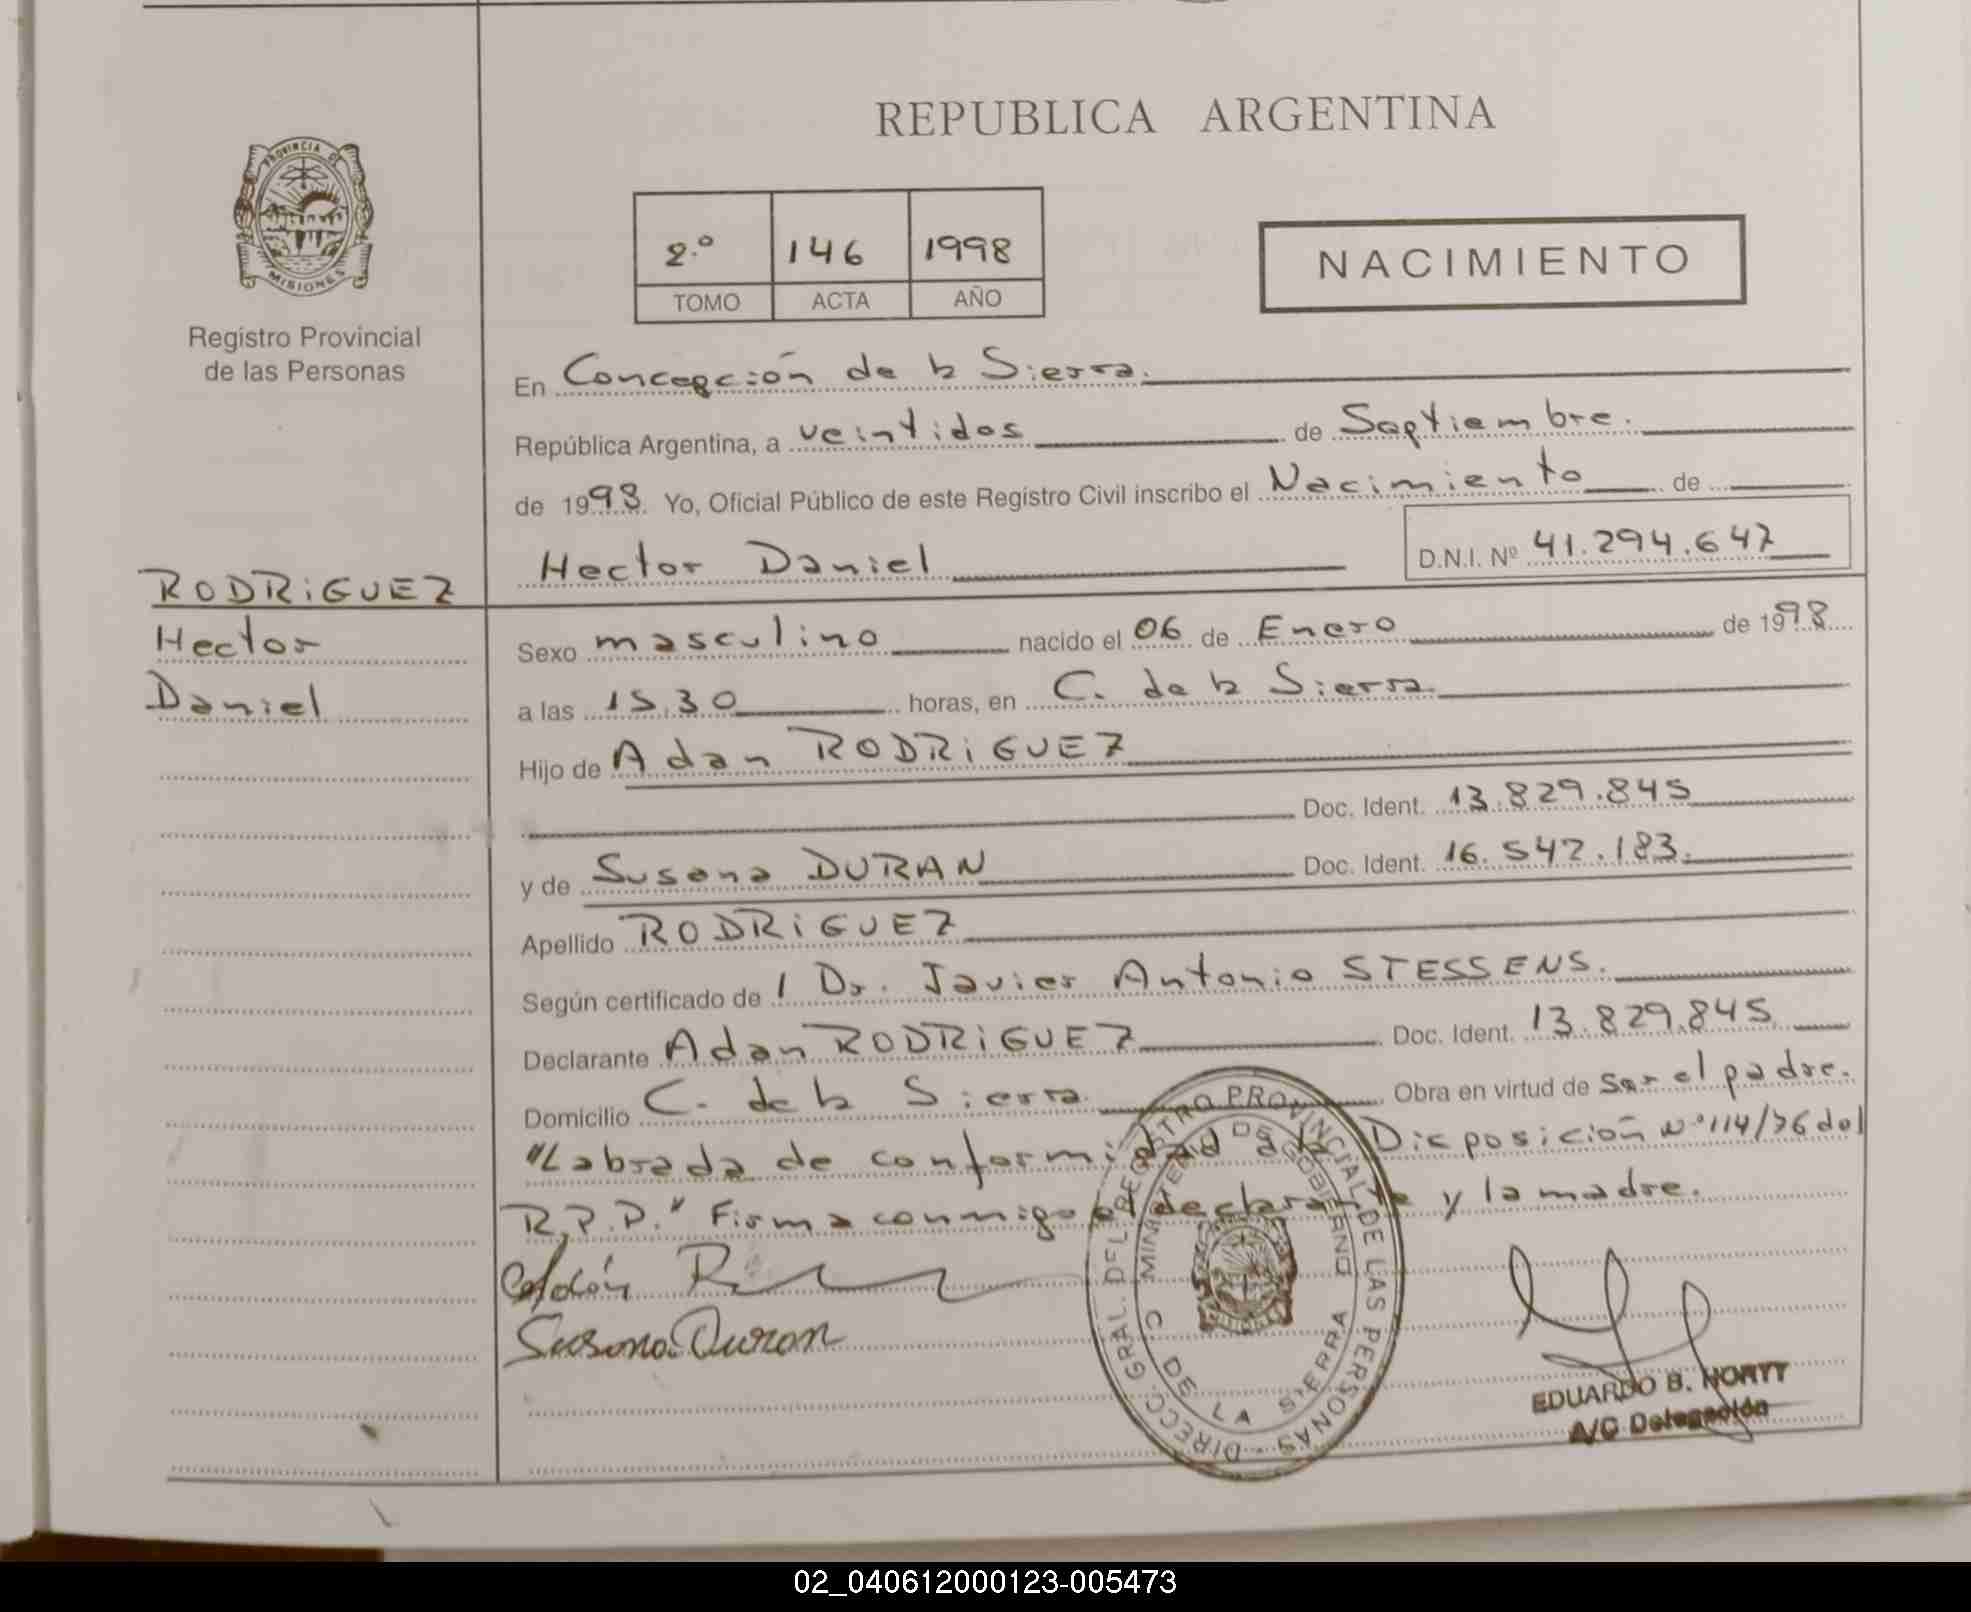 REPUBLICA ARGENTINA
PROVINCIA DE MISIONES
Registro Provincial
de las Personas
2.º 146 1998
TOMO ACTA AÑO
NACIMIENTO
En Concepción de la Sierra.
República Argentina, a veintidos de Septiembre.
de 1998. Yo, Oficial Público de este Registro Civil inscribo el Nacimiento de
Hector Daniel D.N.I. Nº 41.294.647
RODRiGUEZ
Hector
Daniel
Sexo masculino nacido el 06 de Enero de 1998
a las 15.30 horas, en C. de la Sierra.
Hijo de Adan RODRiGUEZ
Doc. Ident. 13.829.845
y de Susana DURAN Doc. Ident. 16.547.183.
Apellido RODRiGUEZ
Según certificado de l Dr. Javier Antonio STESSENS.
Declarante Adan RODRiGUEZ Doc. Ident. 13.829.845
Domicilio C. de la Sierra. Obra en virtud de ser el padre.
"Labrada de conformidad a la Disposición Nº 114/76 del
R.P.P." Firma conmigo el declarante y la madre.
Susana Duran
DIRECC. GRAL. DEL REGISTRO PROVINCIAL DE LAS PERSONAS
MINISTERIO DE GOBIERNO
C DE LA SIERRA
EDUARDO B. NORYT
A/C Delegación
02_040612000123-005473